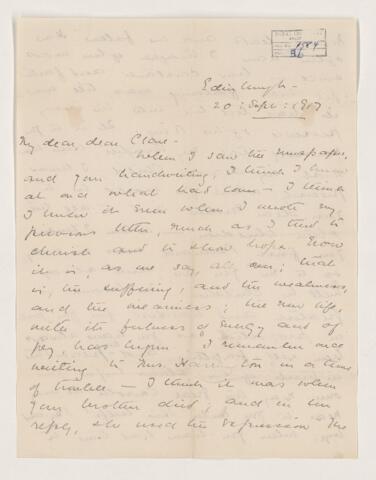 Edinburgh -
20 : Sept : 1917.
My dear, dear Clare -
When I saw the newspaper,
and your handwriting, I think I knew
at once what had come - I think
I knew it even when I wrote my
previous letter, much as I tried to
cherish and to show hope. Now
it is, as we say, all over; that
is, the suffering, and the weakness,
and the weariness; the new life,
with its fulness of energy and of
joy, has begun. I remember once
writing to Mrs. in a time
of trouble - I think it was when
your brother died; and in her
reply, she used the expression "the